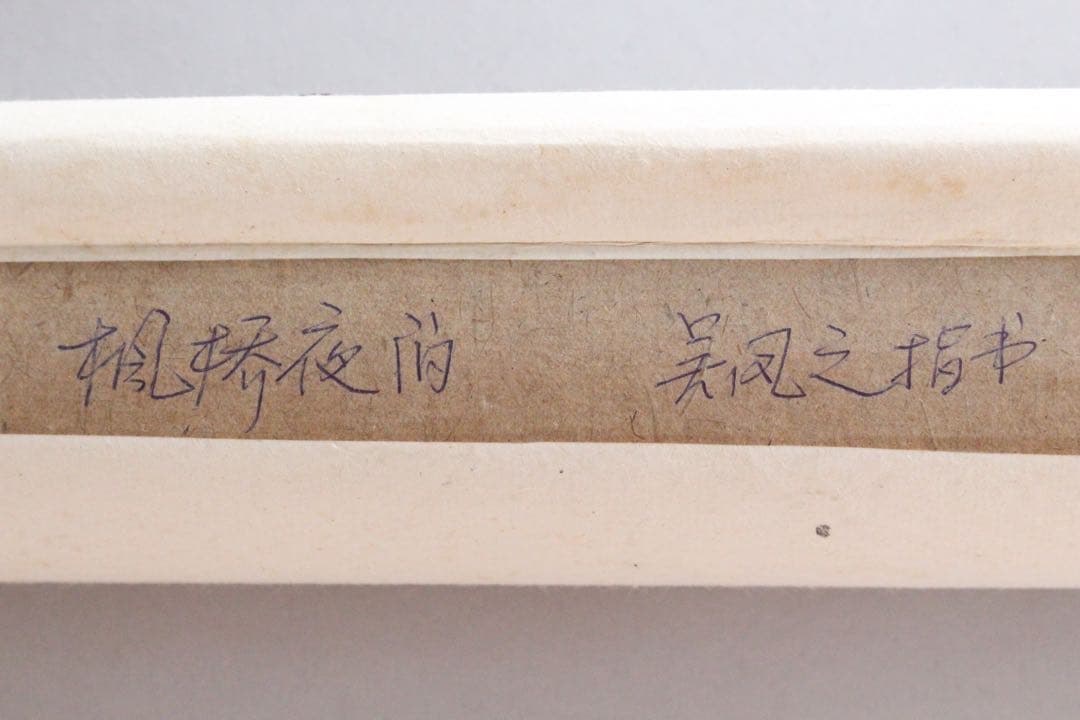 枫桥夜泊 吴凤之指书